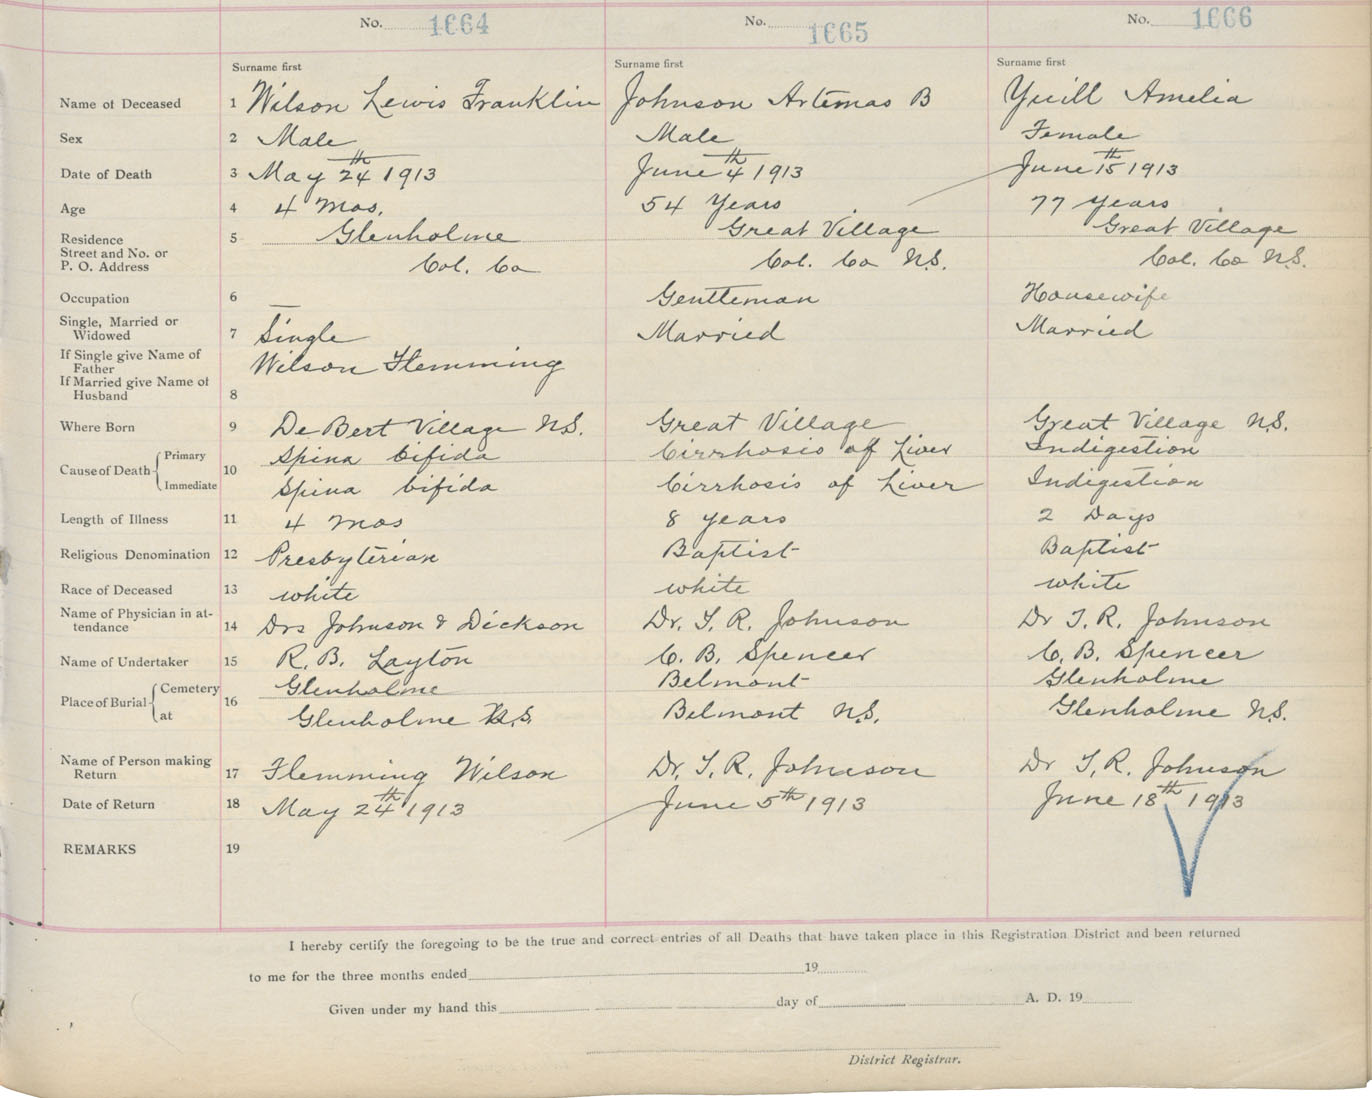 No. 1664 No. 1665 No. 1666
Surname first Surname first Surname first
Name of Deceased 1 Wilson Lewis Franklin Johnson Artemas B Yuill Amelia
Sex 2 Male Male Female
Date of Death 3 May 24th 1913 June 4th 1913 June 15th 1913
Age 4 4 Mos. 54 Years 77 Years
Residence Street and No. or P. O. Address 5 Glenholme Great Village Great Village
Col. Co Col. Co N.S. Col. Co N.S.
Occupation 6 — Gentleman Housewife
Single, Married or Widowed 7 Single Married Married
If Single give Name of Father Wilson Flemming
If Married give Name of Husband 8
Where Born 9 De Bert Village N.S. Great Village Great Village N.S.
Cause of Death Primary 10 Spina bifida Cirrhosis of Liver Indigestion
Immediate Spina bifida Cirrhosis of Liver Indigestion
Length of Illness 11 4 mos 8 years 2 Days
Religious Denomination 12 Presbyterian Baptist Baptist
Race of Deceased 13 white white white
Name of Physician in attendance 14 Drs Johnson & Dickson Dr. T. R. Johnson Dr T. R. Johnson
Name of Undertaker 15 R. B. Layton C. B. Spencer C. B. Spencer
Place of Burial Cemetery 16 Glenholme Belmont Glenholme
at Glenholme N.S. Belmont N.S. Glenholme N.S.
Name of Person making Return 17 Flemming Wilson Dr. T. R. Johnson Dr T. R. Johnson
Date of Return 18 May 24th 1913 June 5th 1913 June 18th 1913
REMARKS 19
I hereby certify the foregoing to be the true and correct entries of all Deaths that have taken place in this Registration District and been returned
to me for the three months ended 19
Given under my hand this day of A. D. 19
District Registrar.